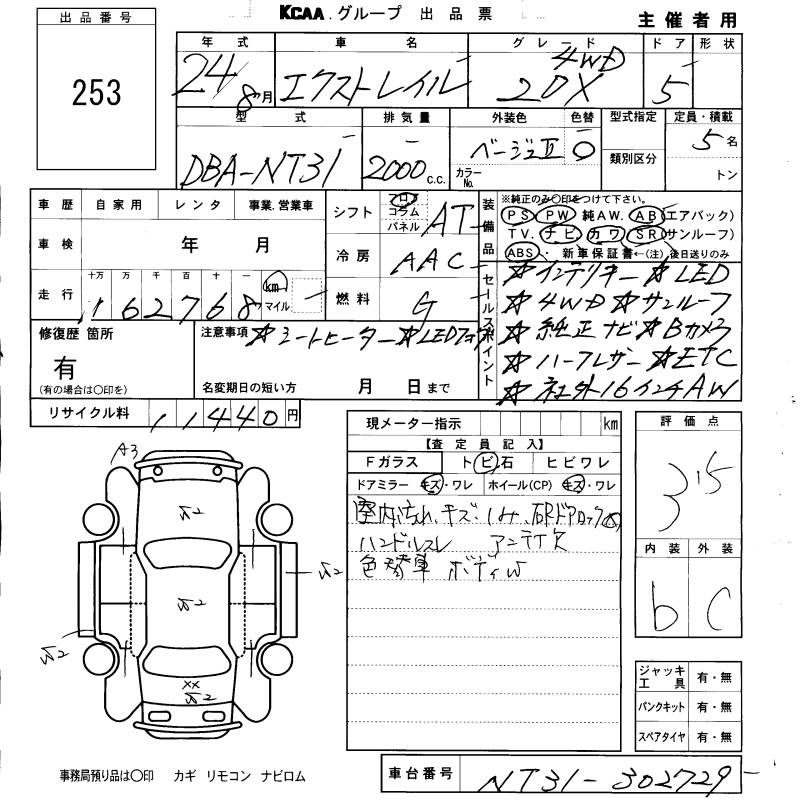 出品番号
253
KCAA.グループ 出品票
主催者用
年式 車名 グレード ドア 形状
24 8月 エクストレイル 20X 4WD 5
型式 排気量 外装色 色替 型式指定 定員・積載
DBA-NT31 2000 C.C. ベージュII カラーNo. 類別区分 5名
トン
車歴 自家用 レンタ 事業.営業車
車検 年 月
走行 十万 万 千 百 十 一 km マイル
162768
シフト フロア コラム パネル AT
冷房 AAC
燃料 G
装備品
※純正のみ〇印をつけて下さい。
PS PW 純AW. AB(エアバック)
TV. ナビ カワ SR(サンルーフ)
ABS. 新車保証書←(注). 後日送りのみ
セールスポイント
☆インテリキー ☆LED
☆4WD ☆サンルーフ
☆純正ナビ ☆Bカメラ
☆ハーフレザー ☆ETC
☆社外16インチAW
修復歴 箇所
有
(有の場合は〇印を)
注意事項 ☆シートヒーター ☆LEDフォグ
名変期日の短い方 月 日まで
リサイクル料 11440円
現メーター指示 km
【査定員記入】
Fガラス トビ石 ヒビワレ
ドアミラー キズ・ワレ ホイール(CP) キズ・ワレ
室内汚れ、キズ・シミ、右Rドアロック
ハンドルスレ アンテナ欠
色替車 ボディW
評価点
3.5
内装 外装
b C
ジャッキ工具 有・無
パンクキット 有・無
スペアタイヤ 有・無
A3
W2
W2
W2
W2
XX
W2
事務局預り品は〇印 カギ リモコン ナビロム
車台番号 NT31-302729